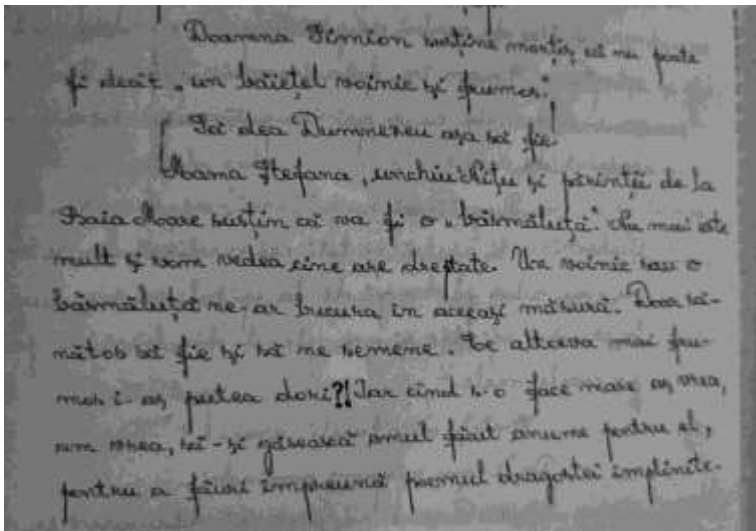 Doamna Simion susține morțiș, că nu poate
fi decît „un băiețel voinic și frumos”.
Să dea Dumnezeu așa să fie.
Mama Ștefana, unchiu Nițu și părinții de la
Baia Mare susțin că va fi o „băsmăluță”. Nu mai este
mult și vom vedea cine are dreptate. Un voinic sau o
băsmăluță ne-ar bucura în aceeași măsură. Doar să-
nătos să fie și să ne semene. Ce altceva mai fru-
mos i-aș putea dori?! Iar cînd s-o face mare aș vrea,
am vrea, să-și găsească omul făcut anume pentru el,
pentru a făuri împreună poemul dragostei împlinite.